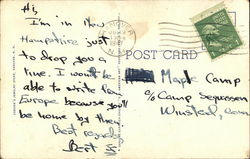 Hi,
I'm in New
Hampshire just
to drop you a
line. I won't be
able to write from
Europe because you'll
be home by then.
Best regards
Bert
POST CARD
Maple Camp
c/o Camp Sequassen
Winsted, Conn